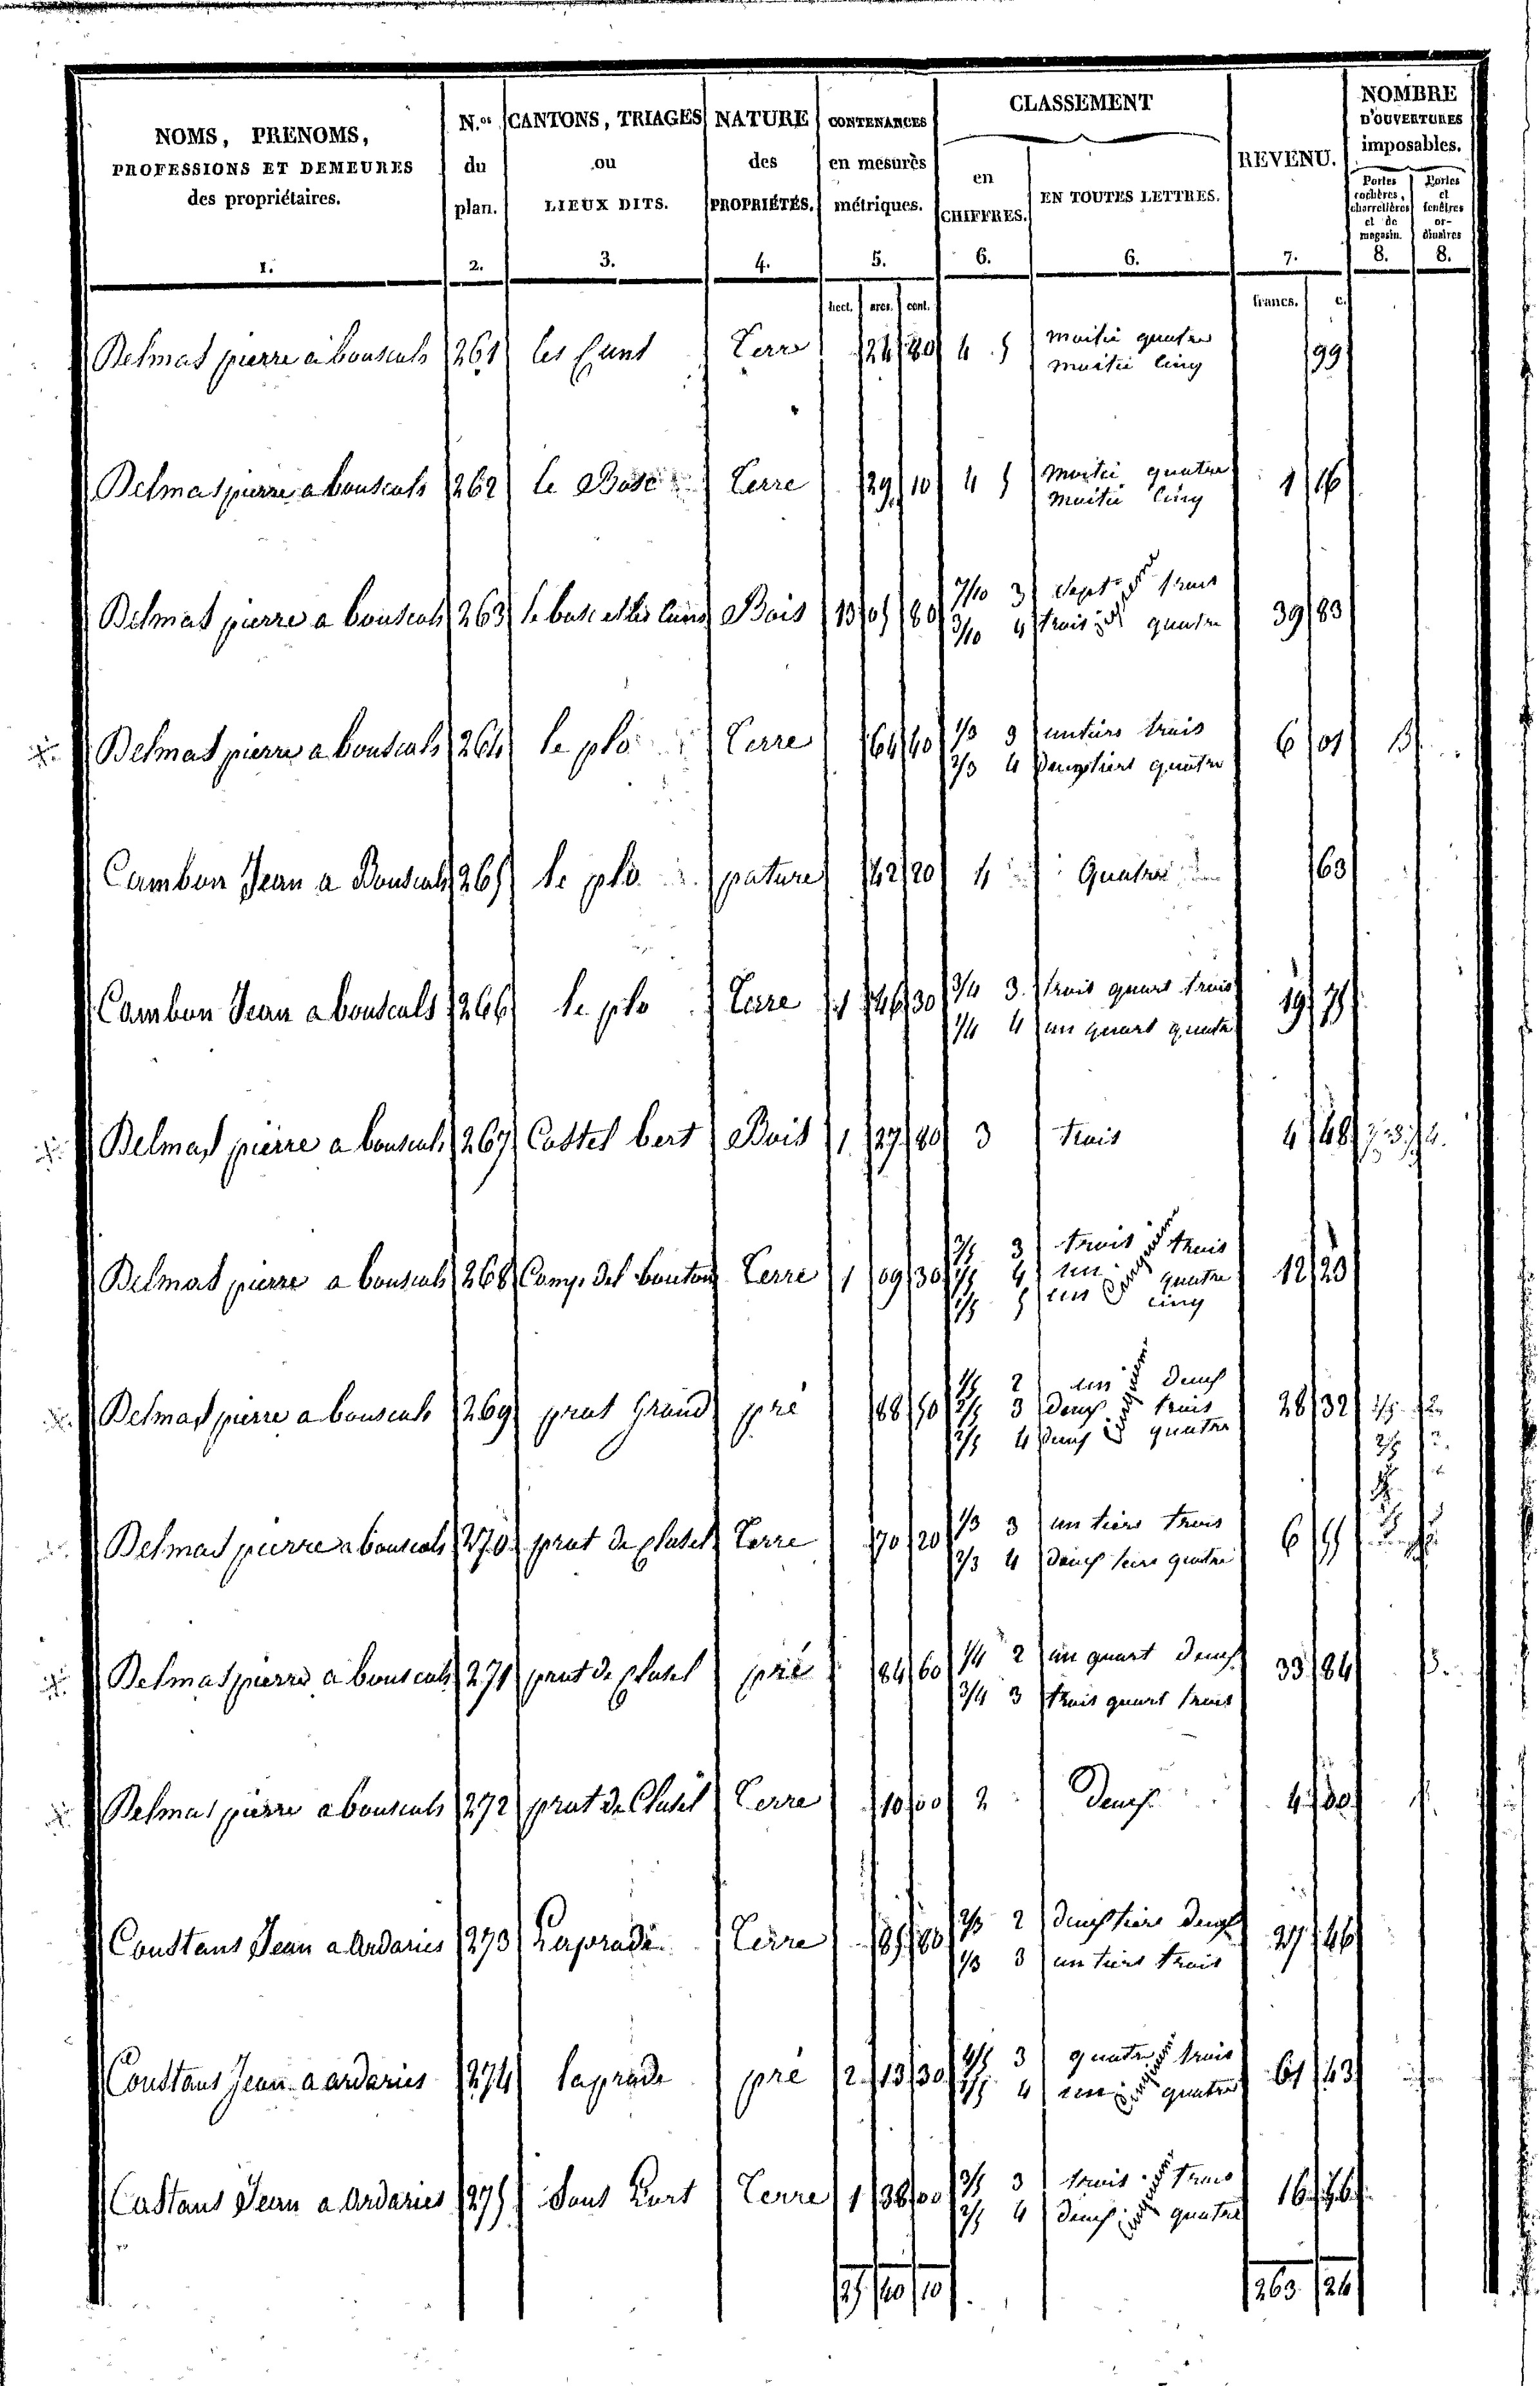 NOMS, PRENOMS, PROFESSIONS ET DEMEURES des propriétaires. 1.
N.os du plan. 2.
CANTONS, TRIAGES ou LIEUX DITS. 3.
NATURE des PROPRIÉTÉS. 4.
CONTENANCES en mesures métriques. 5.
CLASSEMENT
en CHIFFRES. 6.
EN TOUTES LETTRES. 6.
REVENU. 7.
NOMBRE D'OUVERTURES imposables.
Portes cochères, charretières et de magasin. 8.
Portes et fenêtres ordinaires 8.
hect. ares. cent. francs. c.
Belmas pierre a bousculs 261 les Cuns Terre 24 80 4 5 moitié quatre 99
moitié cinq
Belmas pierre a bousculs 262 le Bosc Terre 29 10 4 5 moitié quatre 1 16
moitié cinq
Belmas pierre a bousculs 263 le bosc et les cuns Bois 13 05 80 7/10 3 Sept trois 39 83
3/10 4 trois quatre
Belmas pierre a bousculs 264 le plo Terre 64 40 1/3 3 un tiers trois 6 01
2/3 4 deux tiers quatre
Cambon Jean a Bousculs 265 le plo pature 42 20 4 Quatre 63
Cambon Jean a bousculs 266 le plo Terre 1 46 30 3/4 3 trois quars trois 19 75
1/4 4 un quart quatre
Belmas pierre a bousculs 267 Castel bert Bois 1 27 80 3 trois 4 48
Belmas pierre a bousculs 268 Camp del bouton Terre 1 09 30 3/5 3 trois cinquiem trois 12 23
1/5 4 un quatre
1/5 5 un cinq
Belmas pierre a bousculs 269 prat Grand pré 88 50 1/5 2 un cinquiem deux 28 32
2/5 3 deux trois
2/5 4 deux quatre
Belmas pierre a bousculs 270 prat de Clusel Terre 70 20 1/3 3 un tiers trois 6 55
2/3 4 deux tiers quatre
Belmas pierre a bousculs 271 prat de Clusel pré 84 60 1/4 2 un quart deux 33 84
3/4 3 trois quart trois
Belmas pierre a bousculs 272 prat de Clusel Terre 10 00 2 Deux 4 00
Constans Jean a Ardaries 273 Laprade Terre 85 80 2/3 2 deux tiers deux 27 46
1/3 3 un tiers trois
Constans Jean a ardaries 274 laprade pré 2 13 30 4/5 3 quatre cinquiem trois 61 43
1/5 4 un quatre
Castans Jean a Ardaries 275 Sous Lort Terre 1 38 00 3/5 3 trois cinquiem trois 16 56
2/5 4 deux quatre
25 40 10 263 24